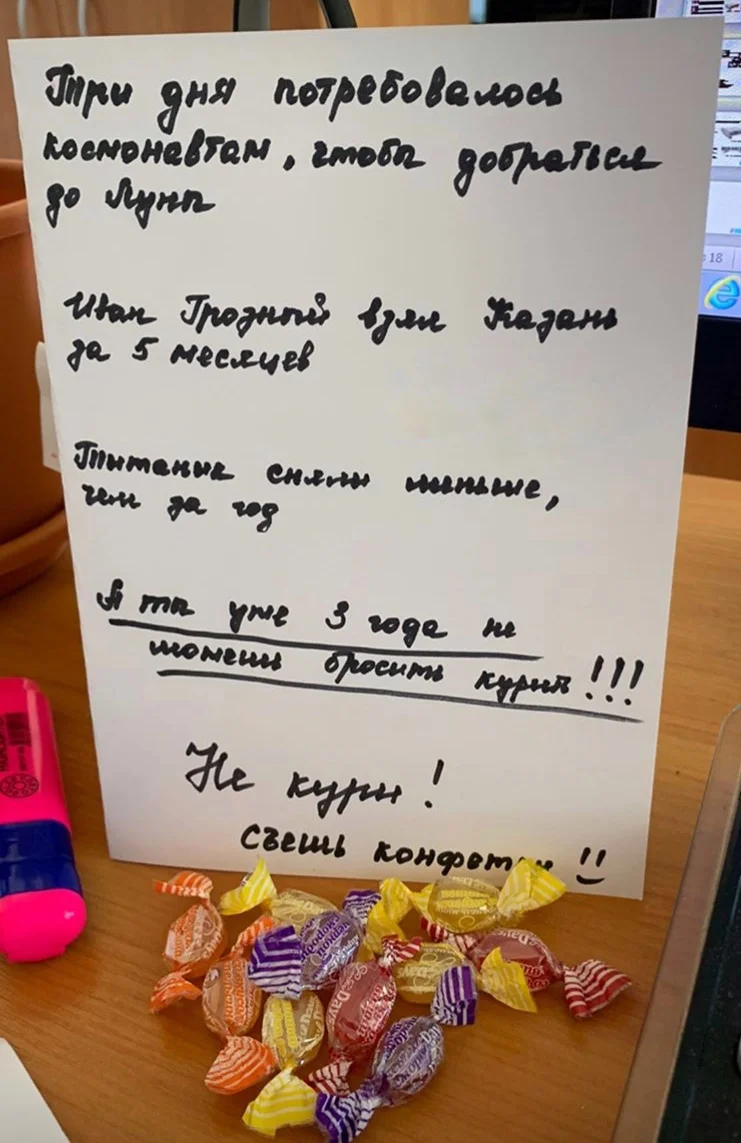 Три дня потребовалось
космонавтам, чтобы добраться
до Луны
Иван Грозный взял Казань
за 5 месяцев
Титаник сняли меньше,
чем за год
А ты уже 3 года не
можешь бросить курить!!!
Не кури!
съешь конфетку!!
18